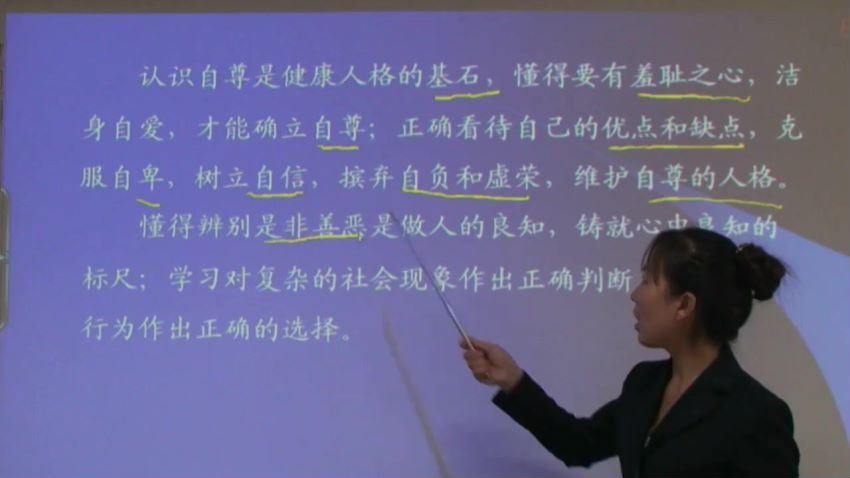 认识自尊是健康人格的基石，懂得要有羞耻之心，洁
身自爱，才能确立自尊；正确看待自己的优点和缺点，克
服自卑，树立自信，摈弃自负和虚荣，维护自尊的人格。
懂得辨别是非善恶是做人的良知，铸就心中良知的
标尺；学习对复杂的社会现象作出正确判断
行为作出正确的选择。